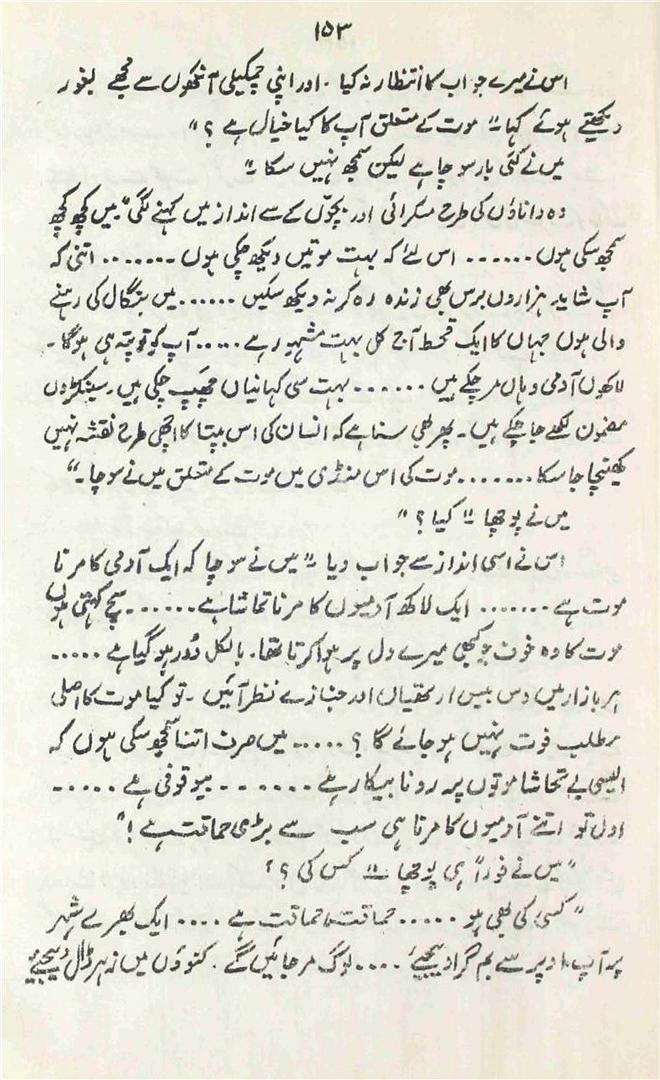 ۱۵۳
اس نے میرے جواب کا انتظار نہ کیا ۔ اور اپنی چمکیلی آنکھوں سے مجھے بغور
دیکھتے ہوئے کہا ‘‘ موت کے متعلق آپ کا کیا خیال ہے ؟ ‘‘
میں نے کئی بار سوچا ہے لیکن سمجھ نہیں سکا ‘‘
وہ داناؤں کی طرح مسکرائی اور بچوّں کے سے انداز میں کہنے لگی ‘‘ میں کچھ کچھ
سمجھ سکی ہوں ...... اس لئے کہ بہت موتیں دیکھ چکی ہوں ....... اتنی کہ
آپ شاید ہزاروں برس بھی زندہ رہ کر نہ دیکھ سکیں ...... میں بنگال کی رہنے
والی ہوں جہاں کا ایک قحط آج کل بہت مشہور ہے ..... آپ کو تو پتہ ہی ہوگا ۔
لاکھوں آدمی وہاں مر چکے ہیں ...... بہت سی کہانیاں چھپ چکی ہیں ۔ سینکڑوں
مضمون لکھے جا چکے ہیں ۔ پھر بھی سنا ہے کہ انسان کی اس بپتا کا اچھی طرح نقشہ نہیں
کھینچا جا سکا ....... موت کی اس منڈی میں موت کے متعلق میں نے سوچا ۔ ‘‘
میں نے پوچھا ‘‘ کیا ؟ ‘‘
اس نے اسی انداز سے جواب دیا ‘‘ میں نے سوچا کہ ایک آدمی کا مرنا
موت ہے ....... ایک لاکھ آدمیوں کا مرنا تماشا ہے ...... سچ کہتی ہوں
موت کا وہ خوف جو کبھی میرے دل پر ہوا کرتا تھا ۔ بالکل دُور ہو گیا ہے .....
ہر بازار میں دس بیس ارتھیاں اور جنازے نظر آئیں ۔ تو کیا موت کا اصلی
مطلب فوت نہیں ہو جائے گا ؟ ..... میں صرف اتنا سمجھ سکی ہوں کہ
ایسی بے تحاشا موتوں پر رونا بیکار ہے ....... بیوقوفی ہے .....
اول تو اتنے آدمیوں کا مرنا ہی سب سے بڑی حماقت ہے ! ‘‘
‘‘ میں نے فوراً ہی پوچھا ‘‘ کس کی ؟ ‘‘
‘‘ کسی کی بھی ہو ..... حماقت حماقت ہے .... ایک بھرے شہر
پر آپ اوپر سے بم گرا دیجیئے .... لوگ مر جائیں گے ۔ کنوؤں میں زہر ڈال دیجیئے